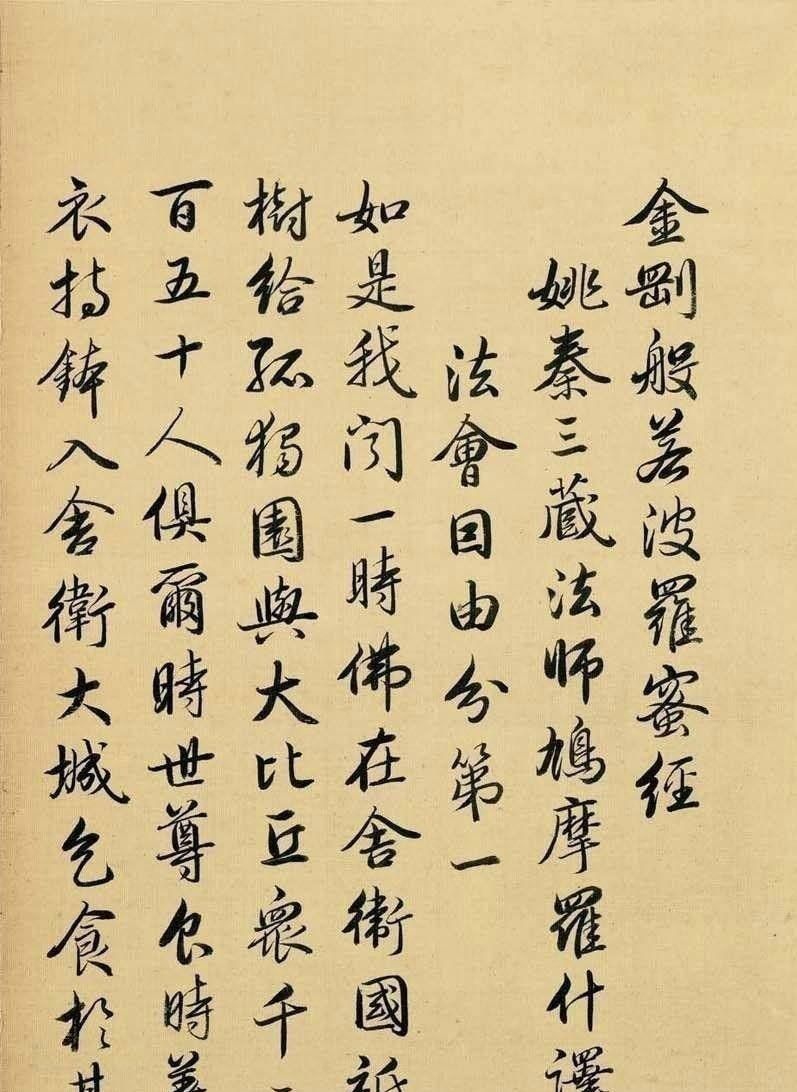 金剛般若波羅蜜經
姚秦三藏法師鳩摩羅什譯
法會因由分第一
如是我聞一時佛在舍衛國祇
樹給孤獨園與大比丘衆千
百五十人俱爾時世尊食時着
衣持鉢入舍衛大城乞食於其